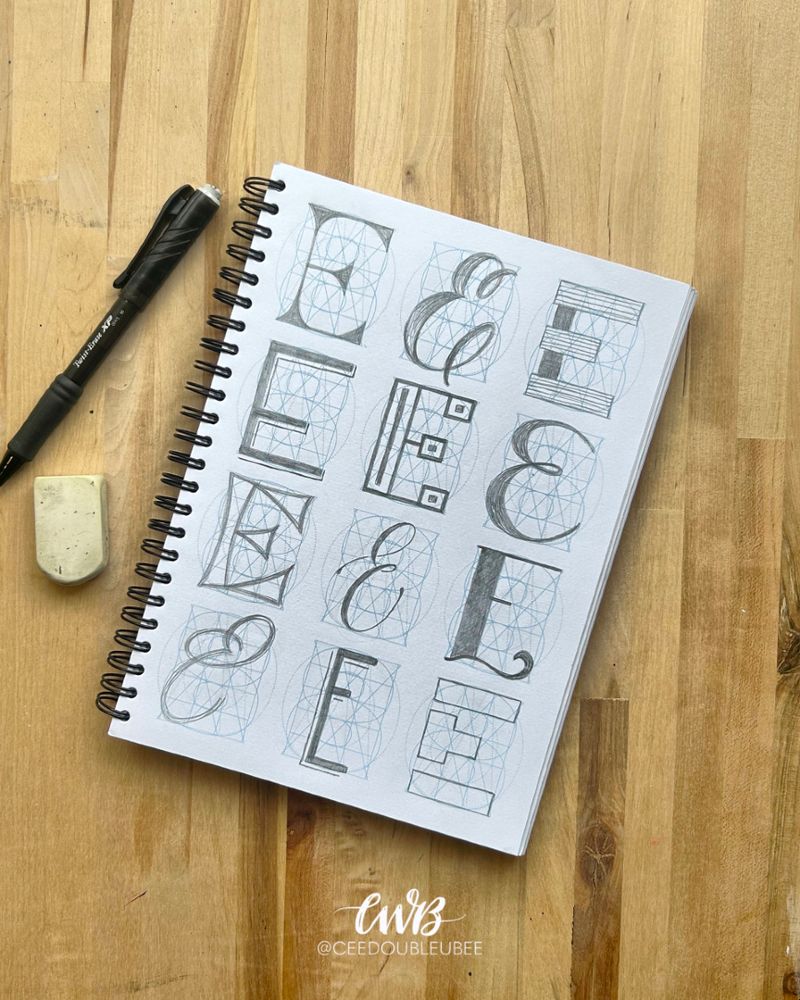 E E E
E E E
E E E
E E E
Twist-Erase XP
CWB
@CEEDOUBLEUBEE